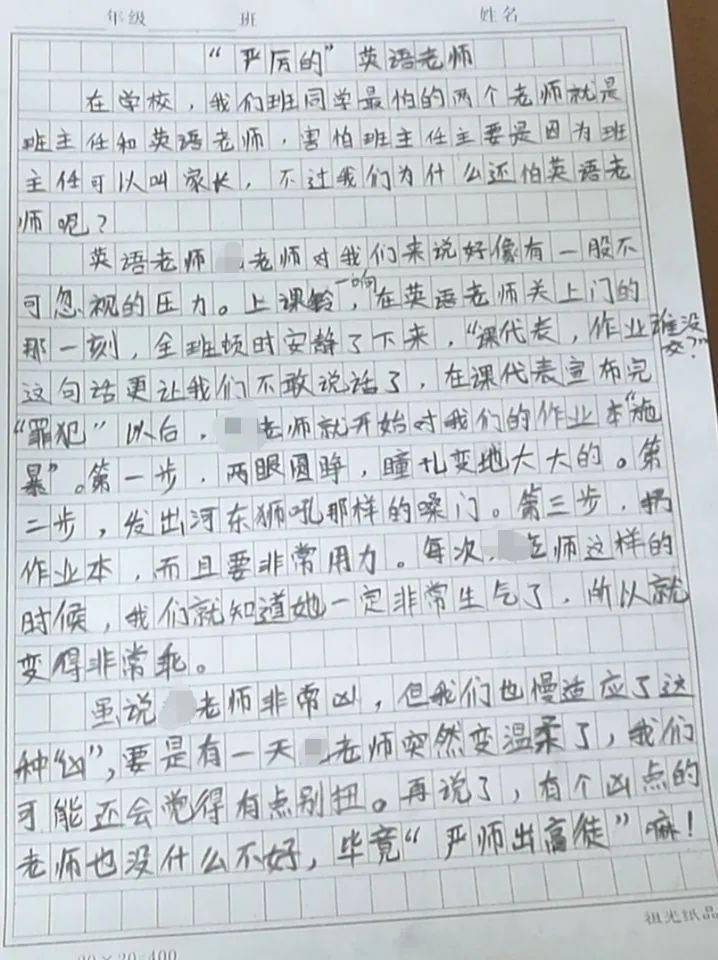 年级 班 姓名
“严厉的”英语老师
在学校，我们班同学最怕的两个老师就是
班主任和英语老师，害怕班主任主要是因为班
主任可以叫家长，不过我们为什么还怕英语老
师呢？
英语老师 老师对我们来说好像有一股不
可忽视的压力。上课铃一响，在英语老师关上门的
那一刻，全班顿时安静了下来，“课代表，作业谁没交？”
这句话更让我们不敢说话了，在课代表宣布完
“罪犯”以后， 老师就开始对我们的作业本“施
暴”。第一步，两眼圆睁，瞳孔变地大大的。第
二步，发出河东狮吼那样的嗓门。第三步，扔
作业本，而且要非常用力。每次 老师这样的
时候，我们就知道她一定非常生气了，所以就
变得非常乖。
虽说 老师非常凶，但我们也慢适应了这
种“凶”，要是有一天 老师突然变温柔了，我们
可能还会觉得有点别扭。再说了，有个凶点的
老师也没什么不好，毕竟“严师出高徒”嘛！
祖光纸品
20×20=400